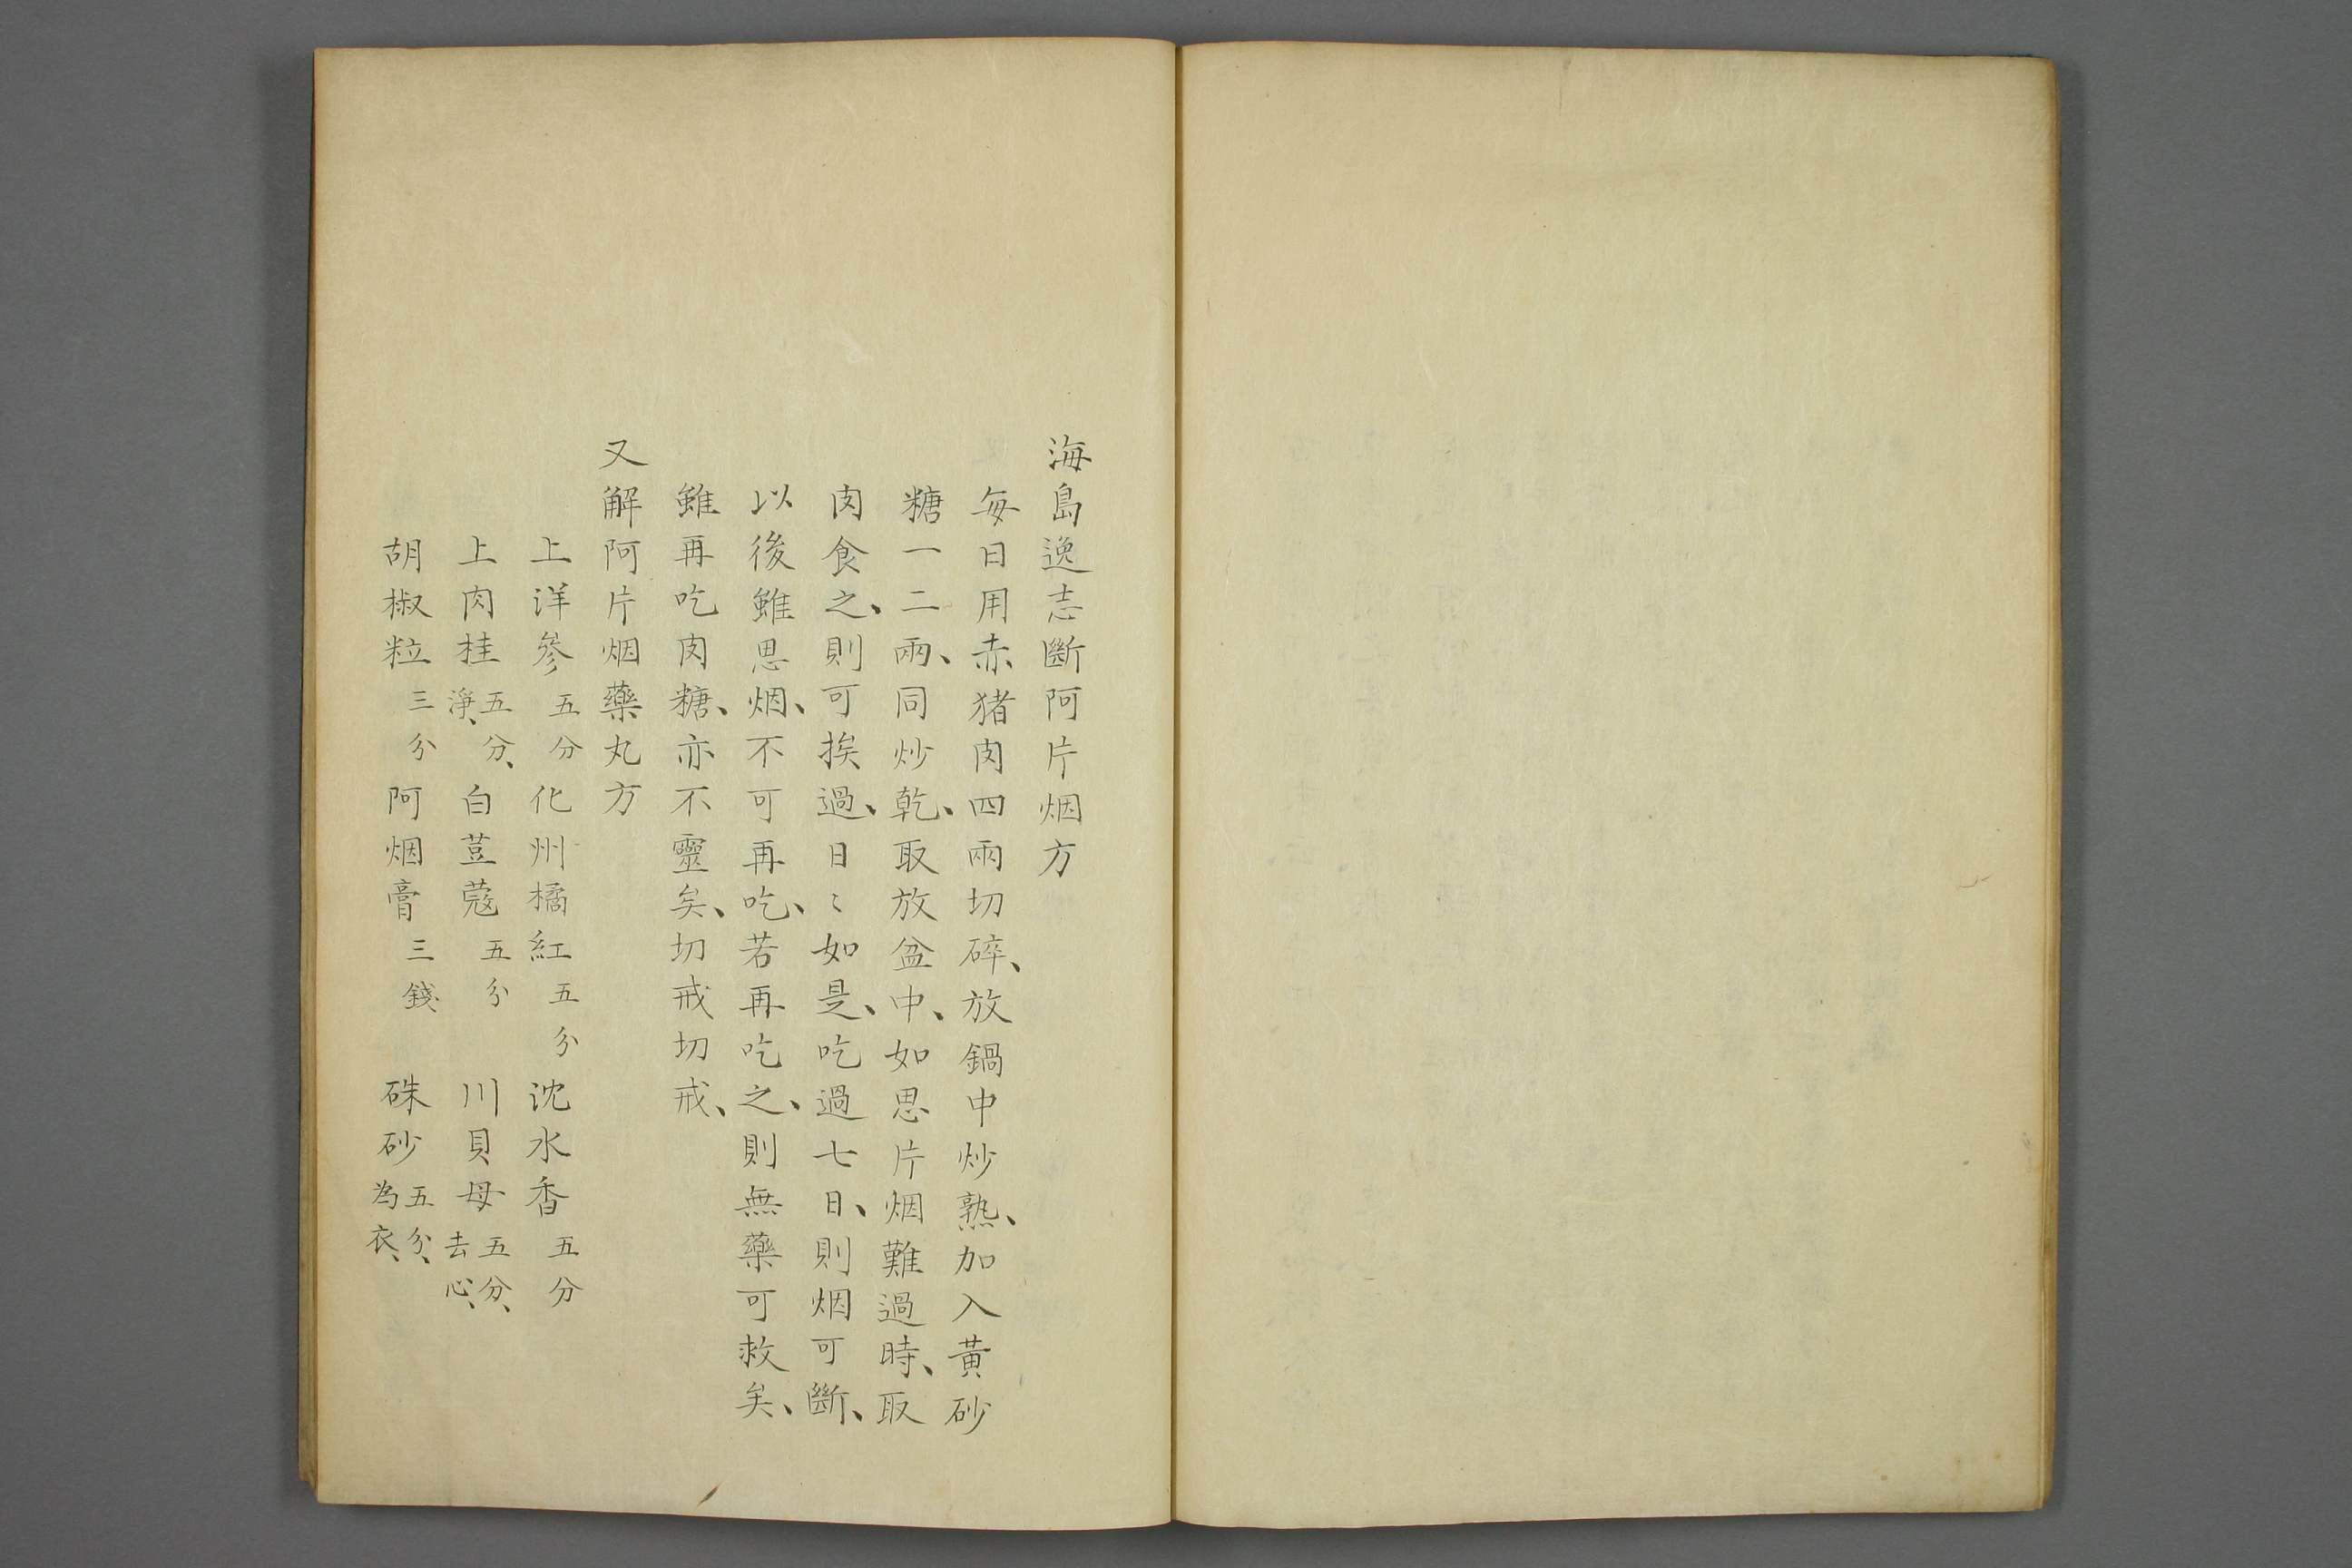 海島逸志斷阿片烟方
每日用赤猪肉四兩切碎、放鍋中炒熟、加入黃砂
糖一二兩、同炒乾、取放盆中、如思片烟難過時、取
肉食之、則可挨過、日〻如是、吃過七日、則烟可斷、
以後雖思烟、不可再吃、若再吃之、則無藥可救矣、
雖再吃肉糖、亦不靈矣、切戒切戒、
又解阿片烟藥丸方
上洋參五分 化州橘紅五分 沈水香五分
上肉桂五分、淨、 白荳蔻五分 川貝母五分、去心、
胡椒粒三分 阿烟膏三錢 硃砂五分、為衣、